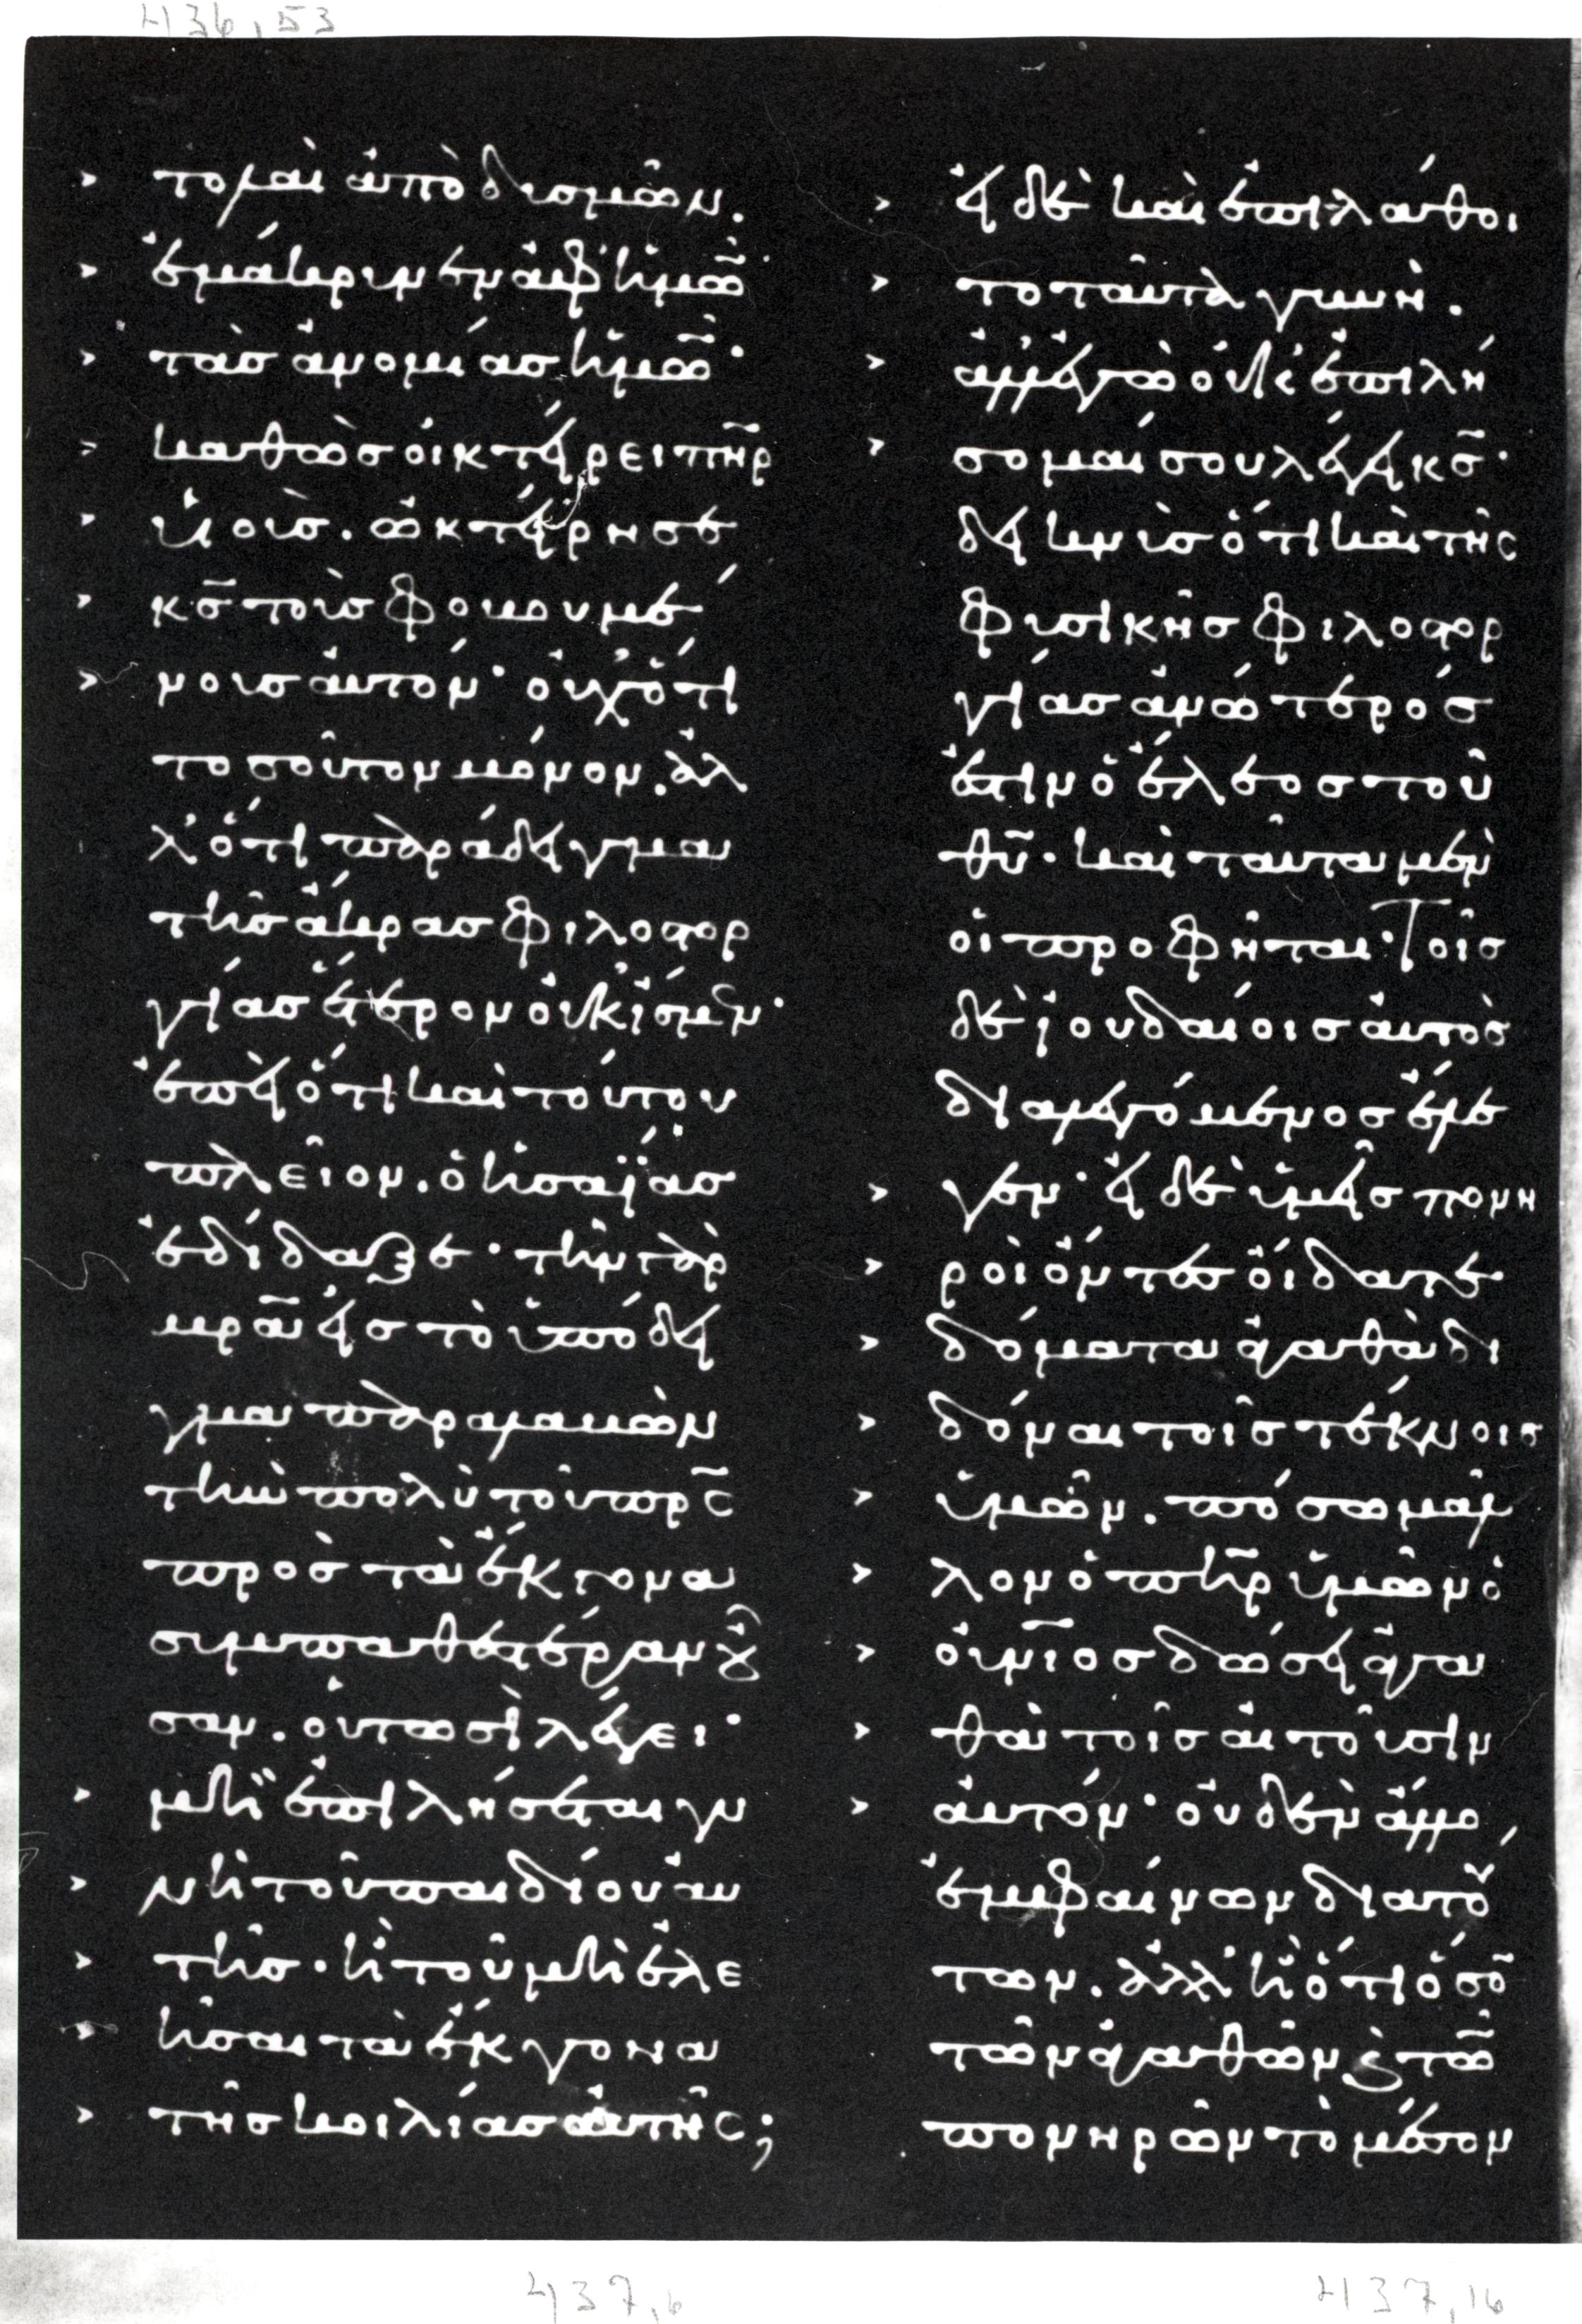 436,53
τολαὶ ἀπὸ δυσμῶν.
ἐμάκρυνεν ἀφ' ἡμῶ̄
τὰσ ἀνομίασ ἡμῶ̄·
καθὼσ ὀικτείρει πη̄ρ
υἱοὺσ. ὠκτείρησε
κσ̄ τοὺσ φοβουμέ
νουσ ἀυτόν· ὀυχ ὅτι
τοσοῦτον μόνον. ἀλ
λ' ὅτι παράδειγμα
τῆσ ἄκρασ φιλοστορ
γίασ ἕτερον ὀυκ ἴσμεν·
ἐπεὶ ὅτι καὶ τούτου
πλεῖον. ὁ ἡσαΐασ
ἐδίδαξε· τὴν γὰρ
μρ̄α εἰσ τὸ ὑπόδει
γμα παραλαβὼν
τὴν πολὺ τοῦ πρ̄ς
πρὸσ τὰ ἔκγονα
συμπαθεστέραν οὖ
σαν. οὑτωσὶ λέγει·
μὴ ἐπιλήσεται γυ
νὴ τοῦ παιδίου ἀυ
τῆσ· ἢ τοῦ μὴ ἐλε
ῆσαι τὰ ἔκγονα
τῆσ κοιλίασ ἀυτῆς;
εἰ δὲ καὶ ἐπιλάθοι
το ταῦτα γυνὴ.
ἀλλ' ἐγὼ ὀυκ ἐπιλή
σομαί σου λέγει κσ̄·
δεικνὺσ ὅτι καὶ τῆς
φυσικῆσ φιλοστορ
γίασ ἀνώτερόσ
ἐστιν ὁ ἔλεοσ τοῦ
θῡ· καὶ ταῦτα μὲν
ὁι προφῆται· Τοῖσ
δὲ ἰουδαίοισ ἀυτὸσ
διαλεγόμενοσ ἔλε
γεν· εἰ δὲ ὑμεῖσ πονη
ροὶ ὄντεσ ὄιδατε
δόματα ἀγαθὰ δι
δόναι τοῖσ τέκνοισ
ὑμῶν. πόσω μᾶλ
λον ὁ πη̄ρ ὑμῶν ὁ
ὀυνιοσ δώσει ἀγα
θὰ τοῖσ ἀιτοῦσιν
ἀυτόν· ὀυδὲν ἄλλο
ἐμφαίνων διὰ τού
των. ἀλλ' ἢ ὅτι ὅσο̄
τῶν ἀγαθῶν ϗ τῶ̄
πονηρῶν τὸ μέσον
437,6
437,16